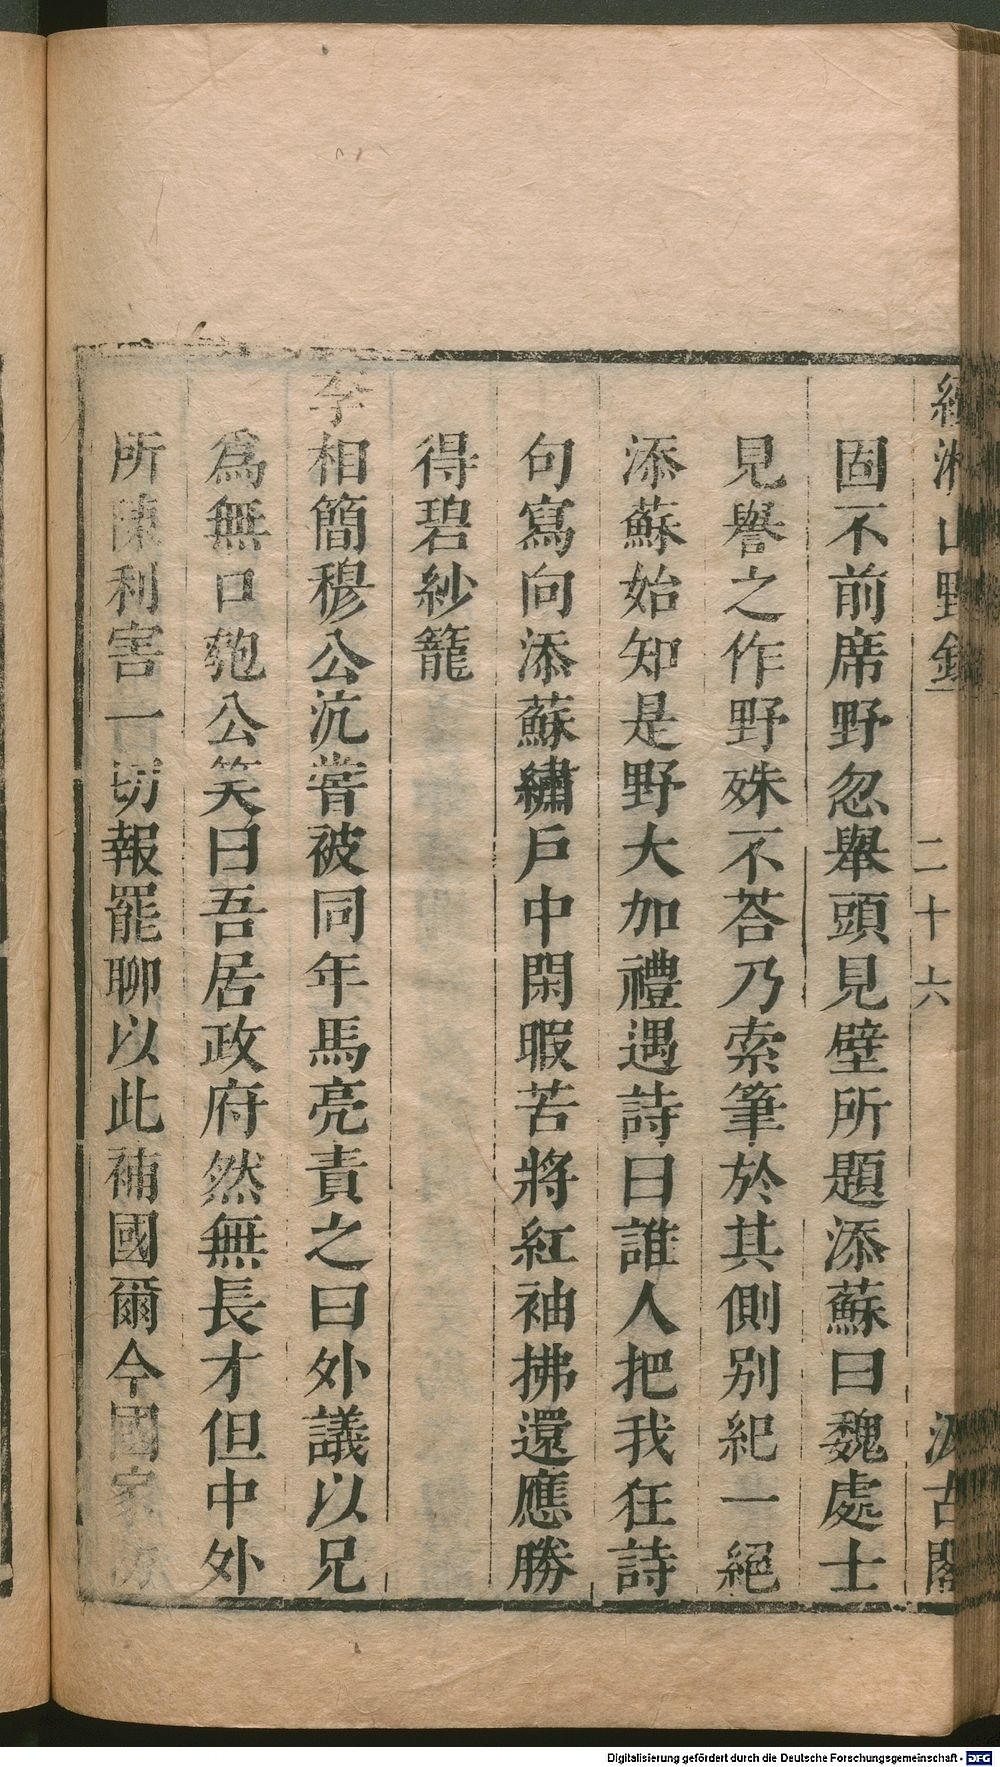 續湘山野錄 二十六 汲古閣
固不前席野忽舉頭見壁所題添蘇曰魏處士
見譽之作野殊不荅乃索筆於其側別紀一絕
添蘇始知是野大加禮遇詩曰誰人把我狂詩
句寫向添蘇繡戶中閑暇苦將紅袖拂還應勝
得碧紗籠
李相簡穆公沆嘗被同年馬亮責之曰外議以兄
爲無口匏公笑曰吾居政府然無長才但中外
所陳利害一切報罷聊以此補國爾今國家防
Digitalisierung gefördert durch die Deutsche Forschungsgemeinschaft - DFG